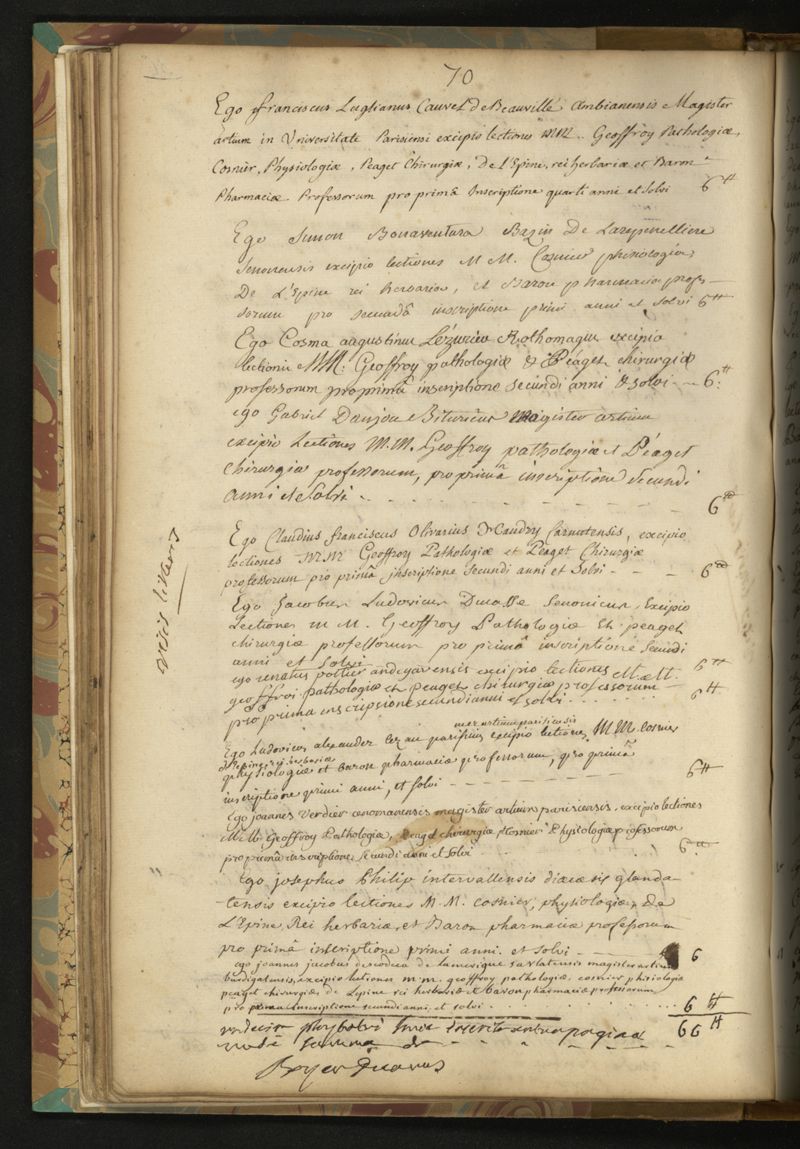 70
Ego franciscus Luglianus Cauvel de Beauville Ambianensis Magister
artium in Universitate Parisiensi excipio lectiones MM. Geoffroy Pathologiæ,
Cosnier, Physiologiæ, Peaget Chirurgiæ, De l'Epine, rei herbariæ et Baron
Pharmaciæ Professorum pro primâ Inscriptione quarti anni et solvi 6tt
Ego Simon Bonaventura Bazin De
Senonensis excipio lectiones M M. Cosnier phisiologiæ
De L'Epine rei herbariæ, et Baron pharmaciæ profes-
sorum pro secundâ inscriptione primi anni et solvi 6tt
Ego Cosma augustinus Rothomagus excipio
lectiones MM. Geoffroy pathologiæ & Péaget chirurgiæ
professorum pro primâ inscriptione secundi anni & solvi 6tt
ego Gabriel Danjou Bituricus Magister artium
excipio Lectiones M.M. Geoffroy pathologiæ et Péaget
chirurgiæ professorum, pro primâ inscriptione secundi
anni et solvi 6
Ego Claudius franciscus Olivarius Carnutensis, excipio
lectiones MM Geoffroy Pathologiæ et Peaget Chirurgiæ
professorum pro primâ inscriptione secundi anni et solvi 6
Ego Jacobus Ludovicus Ducasse Senonicus Excipio
Lectiones m M. Geoffroy Pathologiæ Et peaget
chirurgiæ professorum pro primâ inscriptione secundi
anni et solvi 6tt
ego renatus pottier andegavensis excipio lectiones M. M.
geoffroi pathologiæ et peaget chirurgiæ professorum
pro prima inscripsione secundi anni et solvi 6tt
mag. artium parisiensis
Ego Ludovicus alexander parisinus excipio lectiones MM. Cosnier
de l'epine rei herbariæ
physiologiæ et Baron pharmaciæ professorum, pro primâ
inscriptione primi anni, et solvi 6tt
Ego joannes verdier cenomanensis magister artium parisiensis, excipio lectiones
M.M. Geoffroy Pathologiæ, Peaget chirurgiæ, Cosnier Physiologiæ professorum
pro primâ inscriptione secundi anni et solvi 6tt
Ego josephus Philip intervallensis diœcesis glanda-
tensis excipio lectiones M.M. cosnier, physiologiæ, De
L'Epine, Rei herbariæ, et Baron pharmaciæ professorum
pro primâ inscriptione primi anni et solvi 6
ego joannes jacobus de sarlatensis magister artium
burdigatensis, excipio lectiones m.m. geoffroy pathologiæ, cosnier phisiologiæ
peaget chirurgiæ, de Lepine rei herbariæ et baron pharmaciæ professorum
pro prima inscriptione secundi anni et solvi 6tt
pagina 66tt
summa
Boyer Decanus